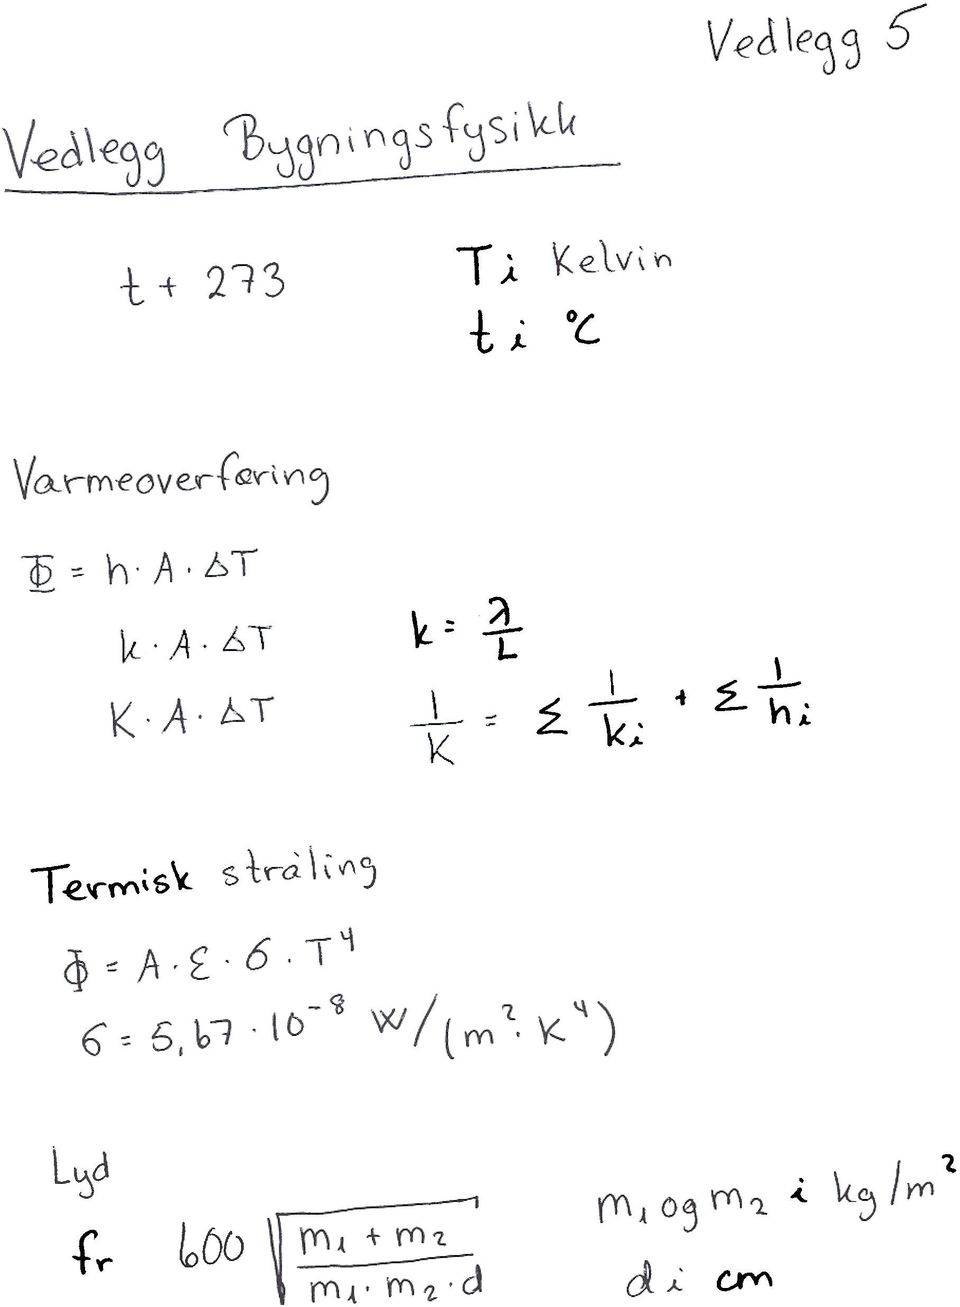 Vedlegg 5
Vedlegg Bygningsfysikk
t + 273 T i Kelvin
t i °C
Varmeoverføring
Φ = h · A · ΔT
k · A · ΔT k = λ/L
K · A · ΔT 1/K = Σ 1/ki + Σ 1/hi
Termisk stråling
Φ = A · ε · σ · T⁴
σ = 5,67 · 10⁻⁸ W/(m² · K⁴)
Lyd
fr 600 √((m₁ + m₂)/(m₁ · m₂ · d)) m₁ og m₂ i kg/m²
d i cm